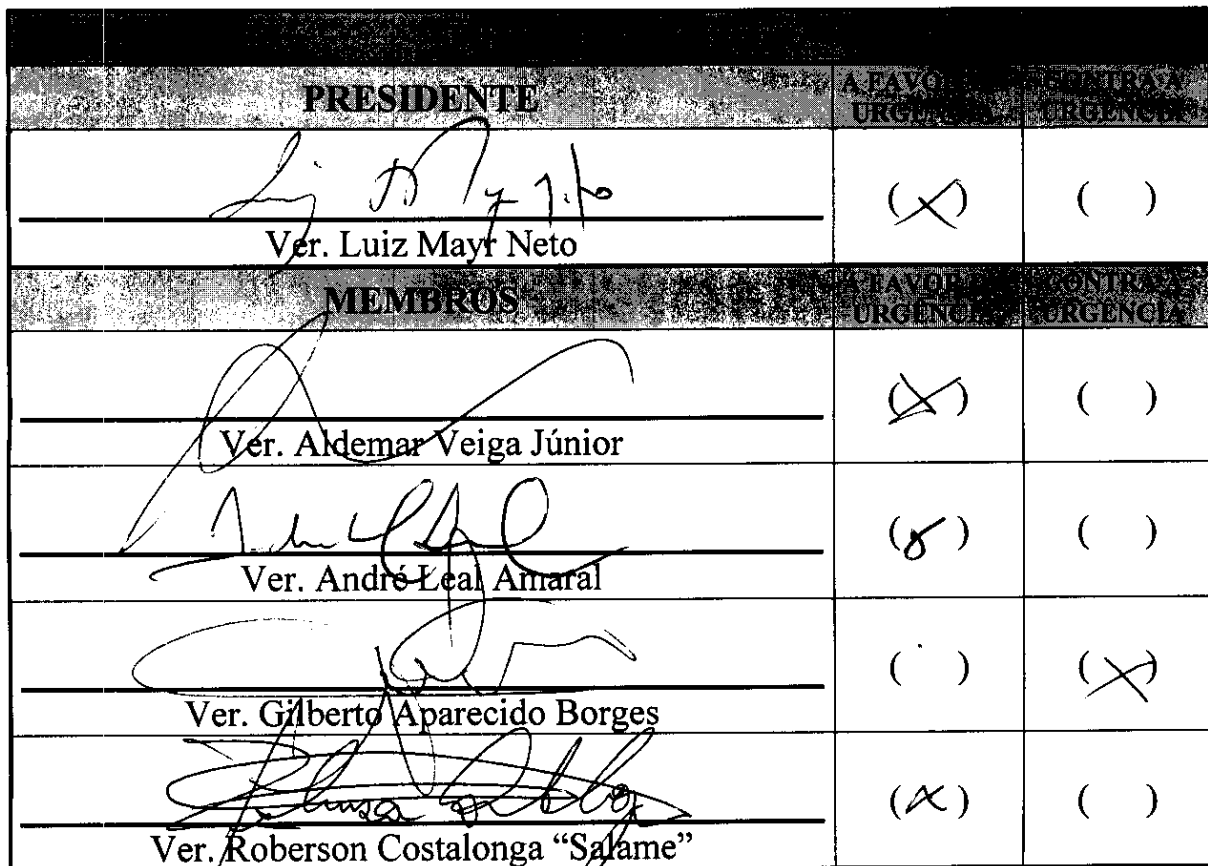 PRESIDENTE
A FAVOR
URGÊNCIA
CONTRA A
URGÊNCIA
( X )
( )
Ver. Luiz Mayr Neto
MEMBROS
A FAVOR
URGÊNCIA
CONTRA A
URGÊNCIA
( X )
( )
Ver. Aldemar Veiga Júnior
( )
Ver. André Leal Amaral
( )
( X )
Ver. Gilberto Aparecido Borges
( X )
( )
Ver. Roberson Costalonga “Salame”